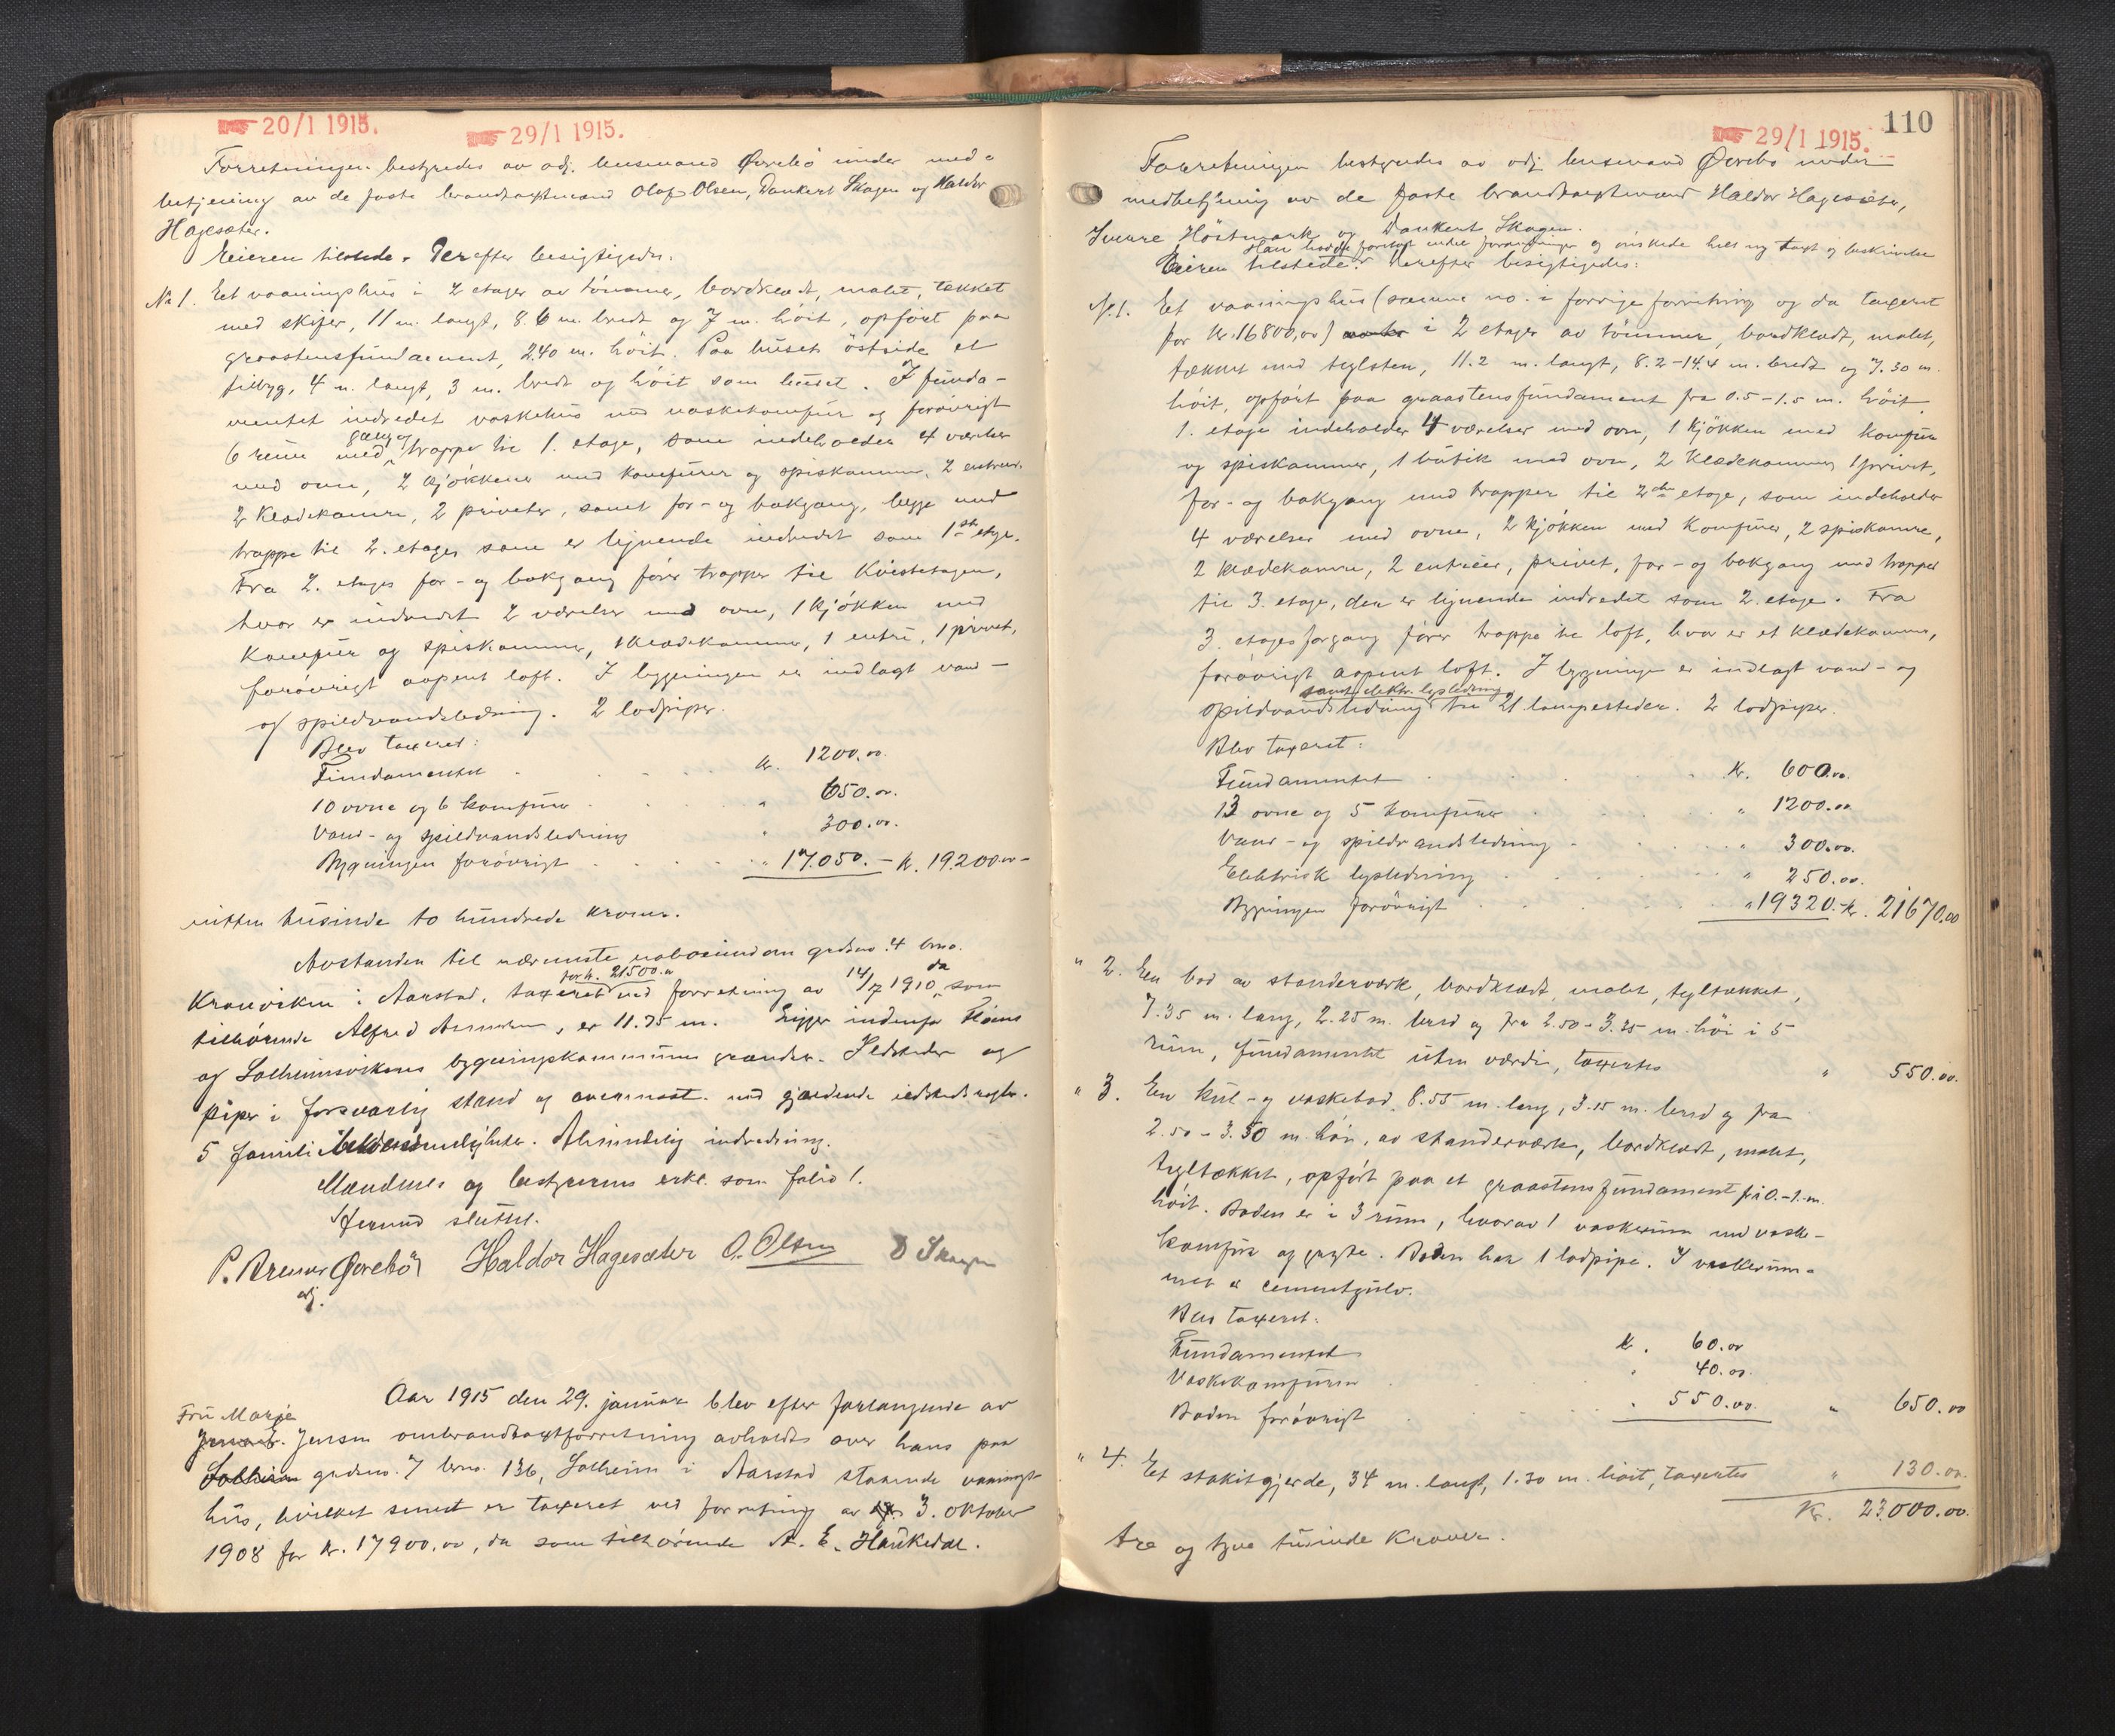 20/1 1915.
29/1 1915.
Forretningen bestyredes av adj. lensmand Øvrebö under med-
betjening av de faste brandtaxtmænd Olaf Olsen, Dankert Skagen og Haldor
Hagesæter.
Eieren tilstede. Derefter besigtigedes.
No 1. Et vaaningshus i 2 etager av tömmer, bordklædt, malet, tækket
med skifer, 11 m. langt, 8.6 m. bredt og 7 m. höit, opfört paa
graastensfundament, 2.40 m. höit. Paa husets östside et
tilbyg, 4 m. langt, 3 m. bredt og höit som huset. I funda-
mentet indredet vaskehus med vaskekomfur og forövrigt
6 rum med gang og trappe til 1. etage, som indeholder 4 værelser
med ovn, 2 kjökkener med komfurer og spiskammer, 2 entreer,
2 klædekamre, 2 priveter, samt for- og bakgang, begge med
trappe til 2. etage, som er lignende indredet som 1ste etage.
Fra 2. etages for- og bakgang förer trapper til Kvistetagen,
hvor er indredet 2 værelser med ovn, 1 kjökken med
komfur og spiskammer, 1 klædekammer, 1 entre, 1 privet,
forövrigt aapent loft. I bygningen er indlagt vand-
og spildvandsledning. 2 lodpiper.
Blev taxeret:
Fundamentet . . . kr. 1200.00.
10 ovne og 6 komfurer . . . " 650.00.
Vand- og spildvandsledning " 300.00.
Bygningen forövrigt . . . " 17.050.- kr. 19.200.00-
nitten tusinde to hundrede kroner.
Avstanden til nærmeste nabobygning grdsno. 4 brno.
Kronviken i Aarstad, taxeret for kr. 21500.00 ved forretning av 14/7 1910, da som
tilhörende Alfred , er 11.75 m. Ligger indenfor Fløens
og Solheimsvikens bygningskommunes grændser. Ildsteder og
piper i forsvarlig stand og overensst. med gjældende ildstedsregler.
5 familiebekvemmeligheter. Almindelig indredning.
Mændenes og bestyrerens erkl. som folio 1.
Hermed sluttet.
P. Øvrebö Haldor Hagesæter O. Olsen D Skagen
adj.
Aar 1915 den 29. januar blev efter forlangende av
Fru Marie
Jensen ombrandtaxtforretning avholdt over hans paa
grdsno. 7 brno. 136, Solheim i Aarstad staaende vaanings-
hus, hvilket senest er taxeret ved forretning av 3. oktober
1908 for kr. 17900.00, da som tilhörende A. E. Haukedal.
29/1 1915. 110
Forretningen bestyredes av adj. lensmand Øvrebö under
medbetjening av de faste brandtaxtmænd Haldor Hagesæter,
Sverre Höstmark og Dankert Skagen.
Han hadde foretat endel forandringer og önskede hel ny taxt og beskrivelse
Eieren tilstede. Derefter besigtigedes:
No. 1. Et vaaningshus (samme no. i forrige forretning og da taxeret
for kr. 16800,00) i 2 etager av tömmer, bordklædt, malet,
tækket med teglsten, 11.2 m. langt, 8.2-14.4 m. bredt og 7.30 m.
höit, opfört paa graastensfundament fra 0.5-1.5 m. höit.
1. etage indeholder 4 værelser med ovn, 1 kjökken med komfur
og spiskammer, 1 butik med ovn, 2 klædekammer, 1 privet,
for- og bakgang med trapper til 2den etage, som indeholder
4 værelser med ovne, 2 kjökken med komfurer, 2 spiskamre,
2 klædekamre, 2 entreer, privet, for- og bakgang med trapper
til 3. etage, der er lignende indredet som 2. etage. Fra
3. etages forgang förer trappe til loft, hvor er et klædekammer,
forövrigt aapent loft. I bygningen er indlagt vand- og
samt elektr. lysledning
spildvandsledning til 21 lampesteder. 2 lodpiper.
Blev taxeret:
Fundamentet . . . kr. 600.00.
13 ovne og 5 komfurer . . . " 1200.00
Vand- og spildvandsledning . . . " 300.00.
Elektrisk lysledning . . . " 250.00.
Bygningen forövrigt . . . " 19320.- kr. 21670.00
" 2. En bod av stenderverk, bordklædt, malet, tegltækket,
7.35 m. lang, 2.25 m. bred og fra 2.50-3.25 m. höi i 5
rum, fundamentet uten værdi, taxertes " 550.00.
" 3. En kul- og vaskebod, 8.55 m. lang, 3.15 m. bred og fra
2.50-3.50 m. höi, av stenderverk, bordklædt, malet,
tegltækket, opfört paa et graastensfundament fra 0.-1.m.
höit. Boden er i 3 rum, hvorav 1 vaskerum med vaske-
komfur og gryte. Boden har 1 lodpipe. I vaskerum-
met er cementgulv.
Blev taxeret:
Fundamentet kr. 60.00
Vaskekomfuren . . . " 40.00.
Boden forövrigt . . . " 550.00. " 650.00
" 4. Et stakitgjerde, 34 m. langt, 1.30 m. höit, taxertes " 130.00.
Kr. 23.000.00.
tre og tyve tusinde kroner.